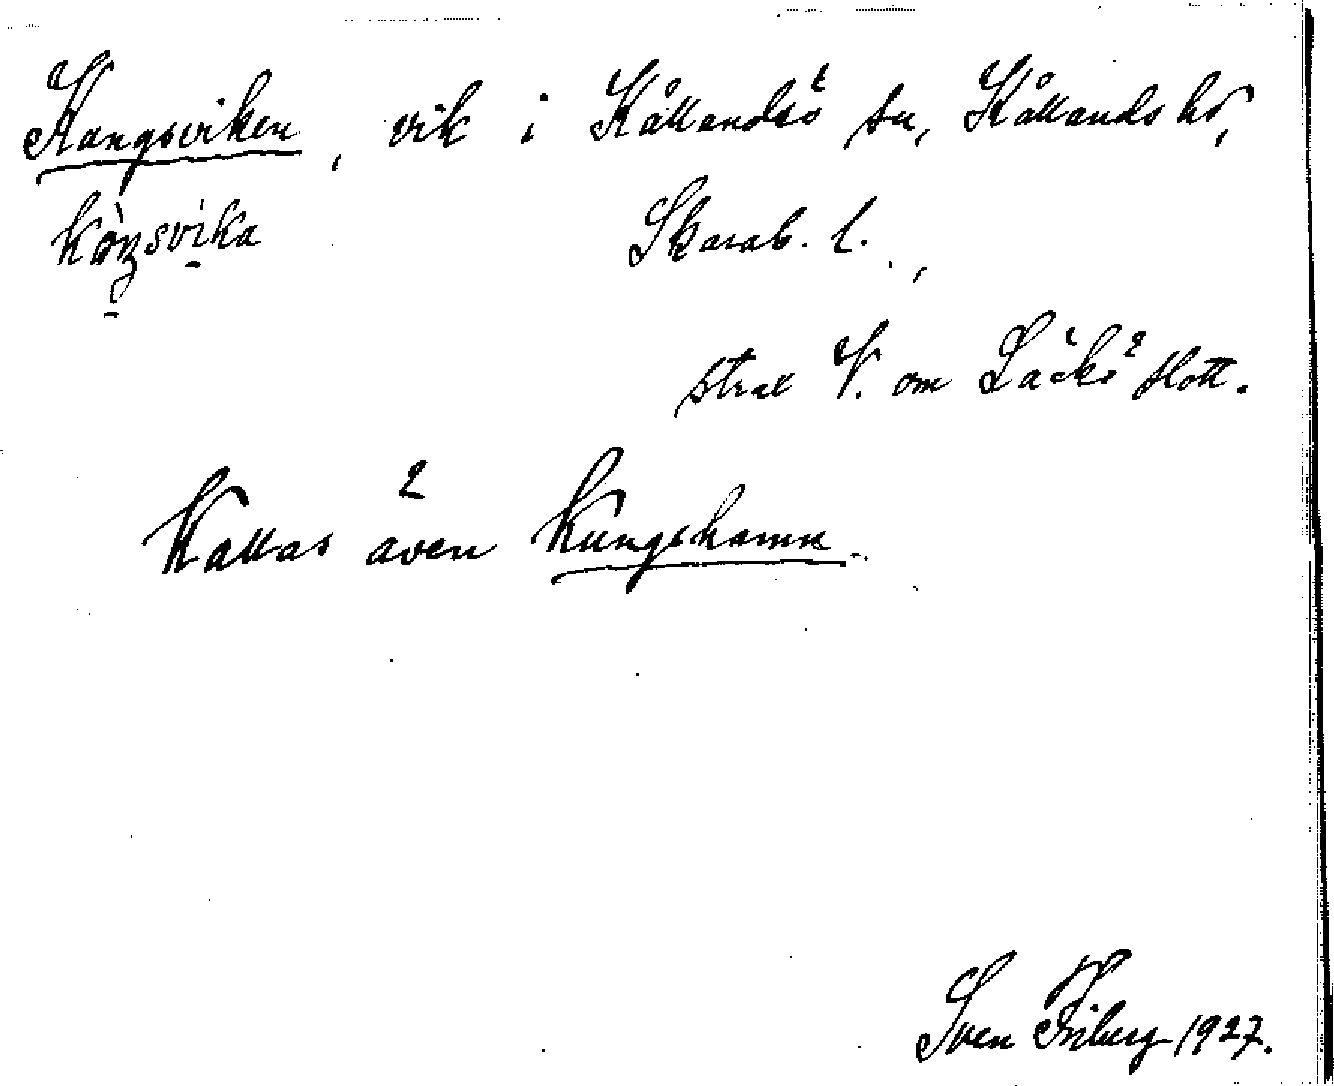 Kungsviken, vik i Kållandsö sn, Kållands hd,
Skarab. l.,
strax V. om Läckö slott.
Kallas även Kungshamn.
Sven Friberg 1927.